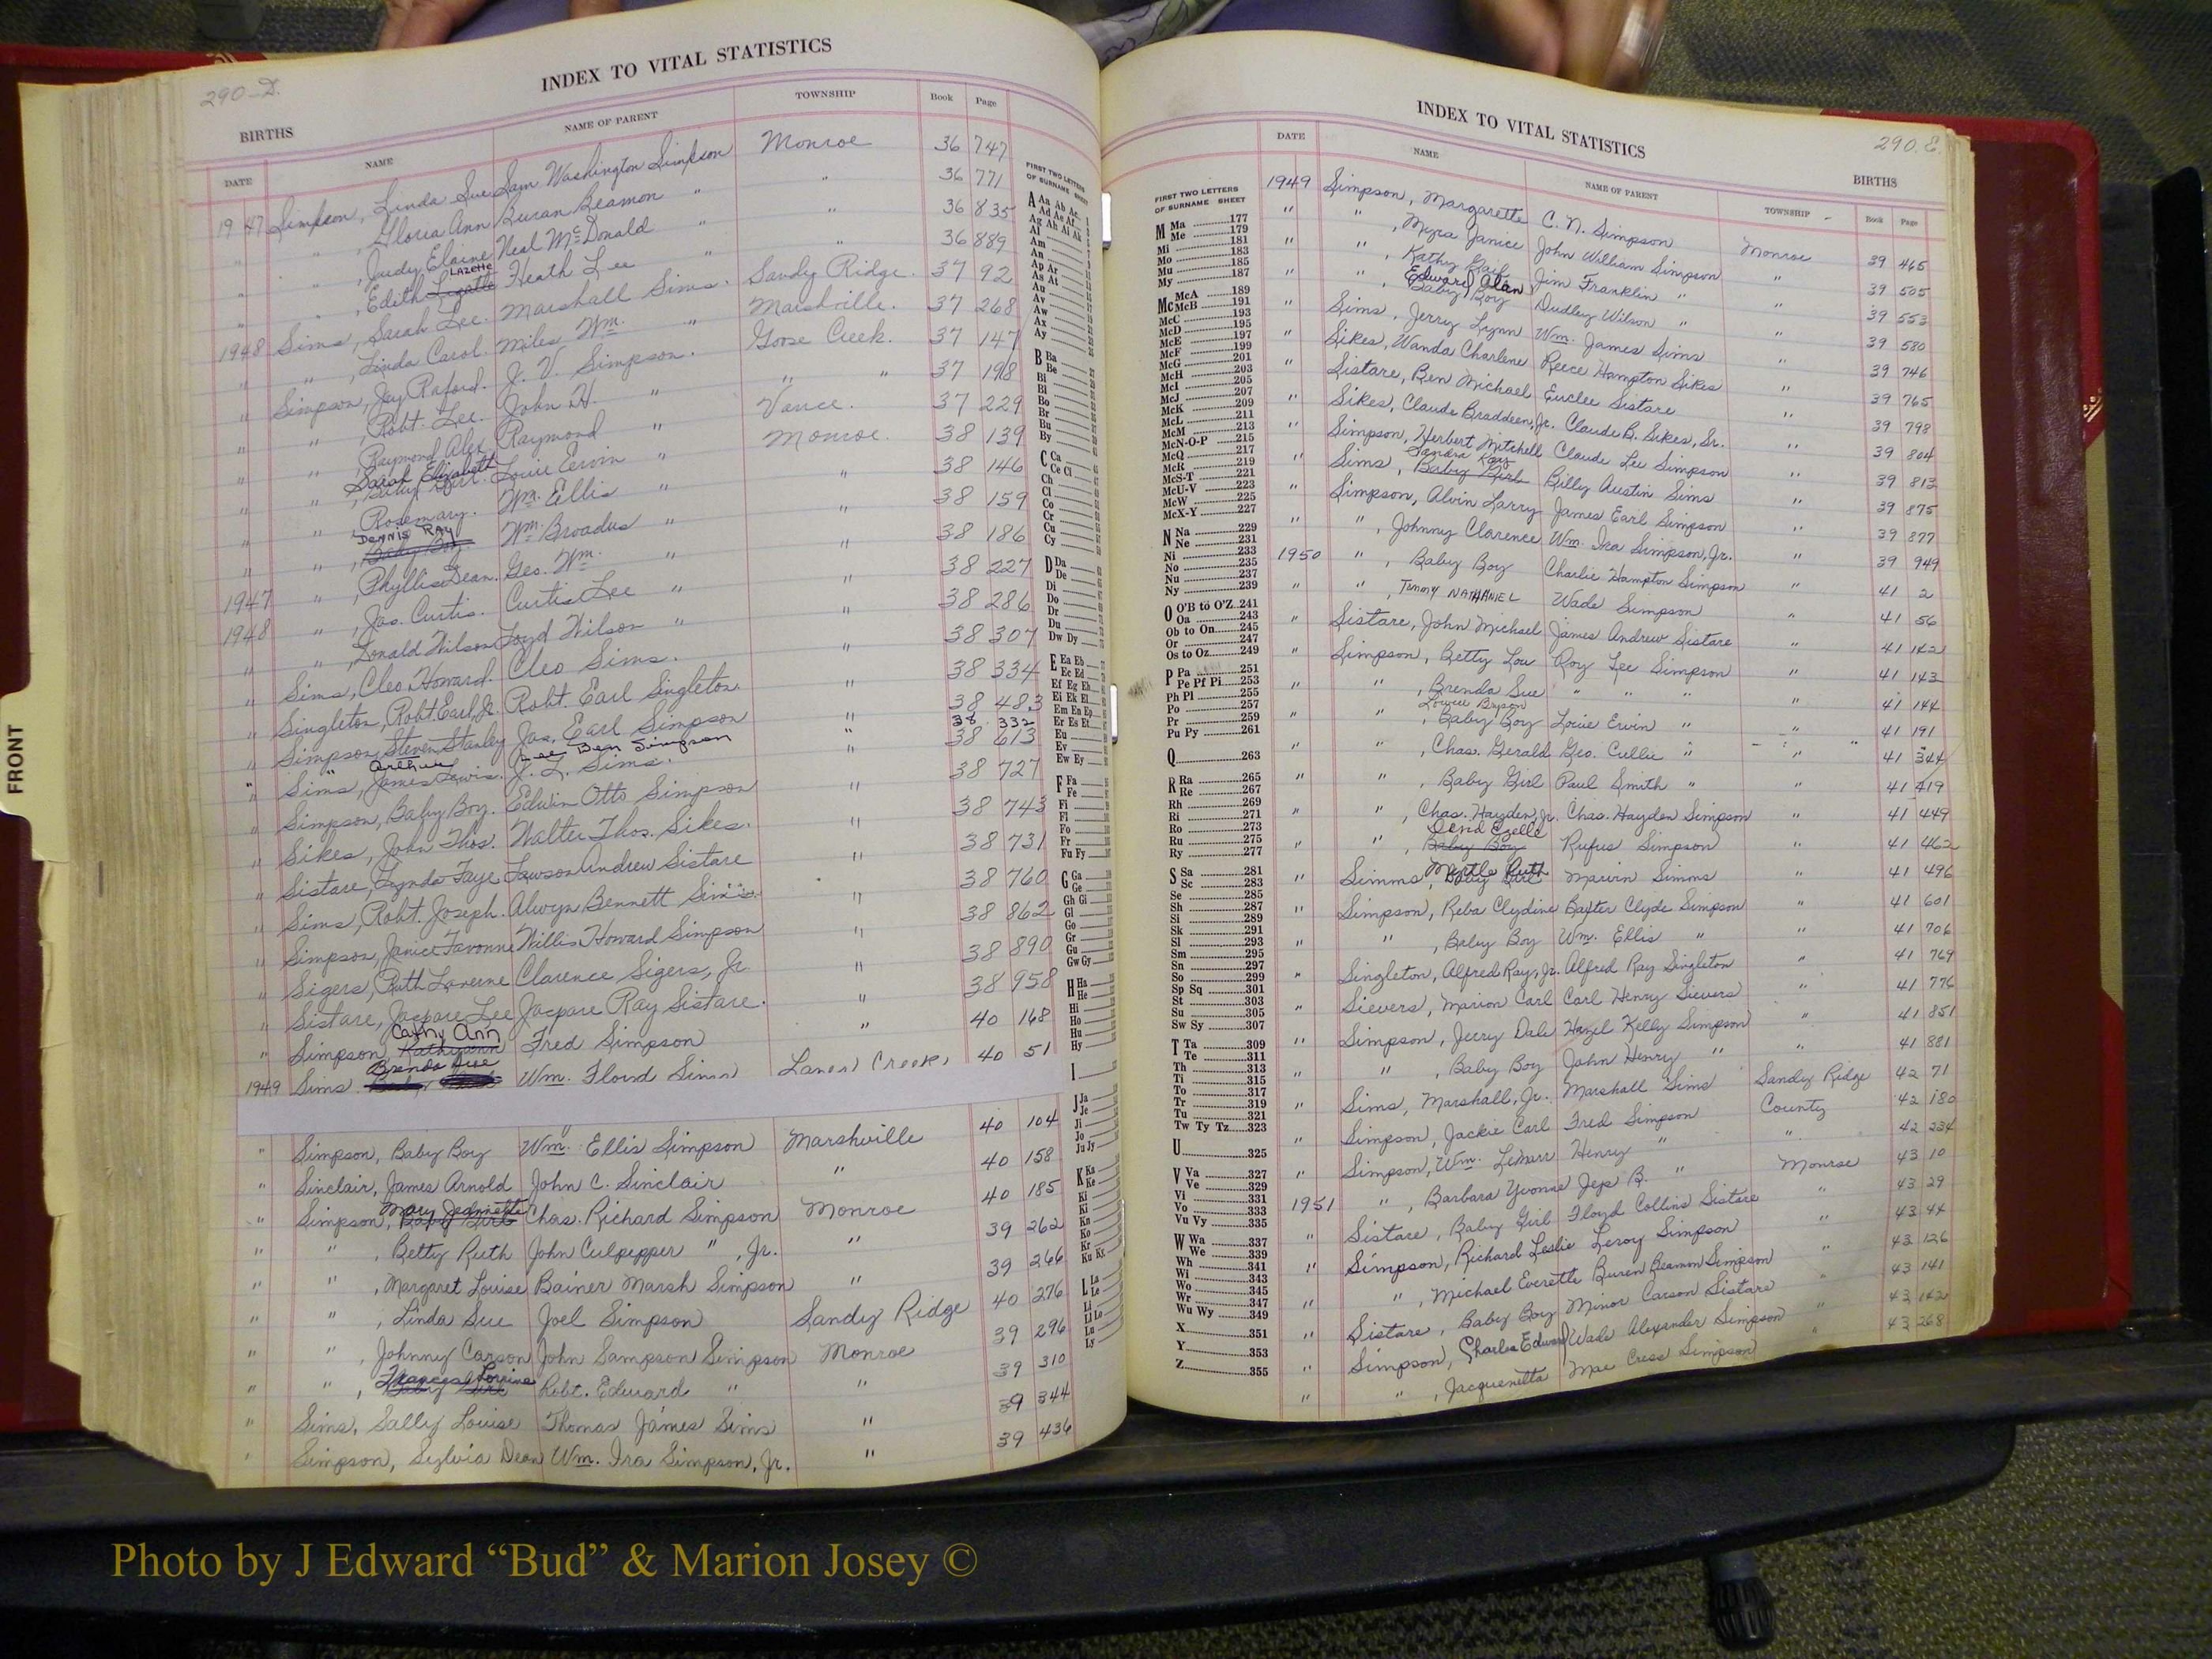 290-D.
INDEX TO VITAL STATISTICS
BIRTHS
DATE NAME NAME OF PARENT TOWNSHIP Book Page
1947 Simpson, Linda Sue Sam Washington Simpson Monroe 36 747
" " , Gloria Ann Buran Beamon " " 36 771
" " , Judy Elaine Neal McDonald " " 36 835
LAZETTE
" " , Edith Heath Lee " " 36 889
1948 Sims, Sarah Lee. Marshall Sims. Sandy Ridge. 37 92
" " , Linda Carol. Miles Wm. " Marshville. 37 268
" Simpson, Jay Raford. J. V. Simpson. Goose Creek. 37 147
" " , Robt. Lee. John H. " " " 37 198
" " , Raymond Alex Raymond " Vance. 37 229
Sarah Elizabeth
" " , Baby Girl. Louie Ervin " Monroe. 38 139
" " , Rosemary. Wm. Ellis " " 38 146
DENNIS RAY
" " , Baby Boy. Wm. Broadus " " 38 159
1947 " , Phyllis Dean. Geo. Wm. " " 38 186
1948 " , Jas. Curtis. Curtis Lee " " 38 227
" " , Donald Wilson Loyd Wilson " " 38 286
" Sims, Cleo Howard. Cleo Sims. " 38 307
" Singleton, Robt. Earl, Jr. Robt. Earl Singleton. " 38 334
" Simpson, Steven Stanley Jas. Earl Simpson " 38 483
Arthur Lee Ben Simpson " 38 332
" Sims, James Lewis. J. L. Sims. " 38 613
" Simpson, Baby Boy. Edwin Otto Simpson " 38 727
" Sikes, John Thos. Walter Thos. Sikes. " 38 743
" Sistare, Lynda Faye Lawson Andrew Sistare " 38 731
" Sims, Robt. Joseph. Alwyn Bennett Sims. " 38 760
" Simpson, Janice Favonne Willis Howard Simpson " 38 862
" Sigers, Ruth Laverne Clarence Sigers, Jr. " 38 890
" Sistare, Jacpare Lee Jacpare Ray Sistare. " 38 958
Cathy Ann
" Simpson, Kathyann Fred Simpson " 40 168
Brenda Dee
1949 Sims Wm. Floyd Sims Lanes Creek, 40 51
" Simpson, Baby Boy Wm. Ellis Simpson Marshville 40 104
" Sinclair, James Arnold John C. Sinclair " 40 158
Mary Jeanette
" Simpson, Baby Girl Chas. Richard Simpson Monroe 40 185
" " , Betty Ruth John Culpepper " , Jr. " 39 262
" " , Margaret Louise Bainer Marsh Simpson " 39 266
" " , Linda Sue Joel Simpson Sandy Ridge 40 276
" " , Johnny Carson John Sampson Simpson Monroe 39 296
Frances Lorine
" " , Baby Girl Robt. Edward " " 39 310
" Sims, Sally Louise Thomas James Sims " 39 344
" Simpson, Sylvia Dean Wm. Ira Simpson, Jr. " 39 436
FRONT
FIRST TWO LETTERS
OF SURNAME SHEET
A Aa Ab Ac
Ad Ae Af
Ag Ah Ai Ak
Al
Am
An
Ap Ar
As At
Au
Av
Aw
Ax
Ay
B Ba
Be
Bi
Bl
Bo
Br
Bu
By
C Ca
Ce Ci
Ch
Cl
Co
Cr
Cu
Cy
D Da
De
Di
Do
Dr
Du
Dw Dy
E Ea Eb
Ec Ed
Ef Eg Eh
Ei Ek El
Em En Ep
Er Es Et
Eu
Ev
Ew Ey
F Fa
Fe
Fi
Fl
Fo
Fr
Fu Fy
G Ga
Ge
Gh Gi
Gl
Go
Gr
Gu
Gw Gy
H Ha
He
Hi
Ho
Hu
Hy
I
J Ja
Je
Ji
Jo
Ju Jy
K Ka
Ke
Ki
Kl
Kn
Ko
Kr
Ku Ky
L La
Le
Li
Ll Lo
Lu
Ly
INDEX TO VITAL STATISTICS
290.E.
BIRTHS
DATE NAME NAME OF PARENT TOWNSHIP Book Page
1949 Simpson, Margarette C. N. Simpson Monroe 39 465
" " , Myra Janice John William Simpson " 39 505
" " , Kathy Gail Jim Franklin " " 39 553
Edward Alan
" " , Baby Boy Dudley Wilson " " 39 580
" Sims, Jerry Lynn Wm. James Sims " 39 746
" Sikes, Wanda Charlene Reece Hampton Sikes " 39 765
" Sistare, Ben Michael Euclee Sistare " 39 798
" Sikes, Claude Braddeen, Jr. Claude B. Sikes, Sr. " 39 804
" Simpson, Herbert Mitchell Claude Lee Simpson " 39 813
Sandra Kay
" Sims, Baby Girl Billy Austin Sims " 39 875
" Simpson, Alvin Larry James Earl Simpson " 39 877
" " , Johnny Clarence Wm. Ira Simpson, Jr. " 39 949
1950 " , Baby Boy Charlie Hampton Simpson " 41 2
" " , Timmy NATHANIEL Wade Simpson " 41 56
" Sistare, John Michael James Andrew Sistare " 41 142
" Simpson, Betty Lou Roy Lee Simpson " 41 143
" " , Brenda Sue " " " " 41 144
Lowell Bryson
" " , Baby Boy Louie Ervin " " 41 191
" " , Chas. Gerald Geo. Cullie " " 41 344
" " , Baby Girl Paul Smith " " 41 419
" " , Chas. Hayden, Jr. Chas. Hayden Simpson " 41 449
" " , Baby Boy Rufus Simpson " 41 462
Myrtle Ruth
" Simms, Baby Girl Marvin Simms " 41 496
" Simpson, Reba Clydine Baxter Clyde Simpson " 41 601
" " , Baby Boy Wm. Ellis " " 41 706
" Singleton, Alfred Ray, Jr. Alfred Ray Singleton " 41 769
" Sievers, Marion Carl Carl Henry Sievers " 41 776
" Simpson, Jerry Dale Hazel Kelly Simpson " 41 851
" " , Baby Boy John Henry " " 41 881
" Sims, Marshall, Jr. Marshall Sims Sandy Ridge 42 71
" Simpson, Jackie Carl Fred Simpson County 42 180
" Simpson, Wm. Lemarr Henry " " 42 234
1951 " , Barbara Yvonne Jeps B. " Monroe 43 10
" Sistare, Baby Girl Floyd Collins Sistare " 43 29
" Simpson, Richard Leslie Leroy Simpson 43 44
" " , Michael Everette Buren Beamon Simpson " 43 126
" Sistare, Baby Boy Minor Carson Sistare " 43 141
" Simpson, Charles Edward Wade Alexander Simpson " 43 142
" " , Jacquenetta Mae Cress Simpson " 43 268
FIRST TWO LETTERS
OF SURNAME SHEET
M Ma 177
Me 179
Mi 181
Mo 183
Mu 185
My 187
Mc McA 189
McB 191
McC 193
McD 195
McE 197
McF 199
McG 201
McH 203
McI 205
McJ 207
McK 209
McL 211
McM 213
McN-O-P 215
McQ 217
McR 219
McS-T 221
McU-V 223
McW 225
McX-Y 227
N Na 229
Ne 231
Ni 233
No 235
Nu 237
Ny 239
O O'B to O'Z 241
Oa 243
Ob to On 245
Or 247
Os to Oz 249
P Pa 251
Pe Pf Pi 253
Ph Pl 255
Po 257
Pr 259
Pu Py 261
Q 263
R Ra 265
Re 267
Rh 269
Ri 271
Ro 273
Ru 275
Ry 277
S Sa 281
Sc 283
Se 285
Sh 287
Si 289
Sk 291
Sl 293
Sm 295
Sn 297
So 299
Sp Sq 301
St 303
Su 305
Sw Sy 307
T Ta 309
Te 311
Th 313
Ti 315
To 317
Tr 319
Tu 321
Tw Ty Tz 323
U 325
V Va 327
Ve 329
Vi 331
Vo 333
Vu Vy 335
W Wa 337
We 339
Wh 341
Wi 343
Wo 345
Wr 347
Wu Wy 349
X 351
Y 353
Z 355
Photo by J Edward “Bud” & Marion Josey ©